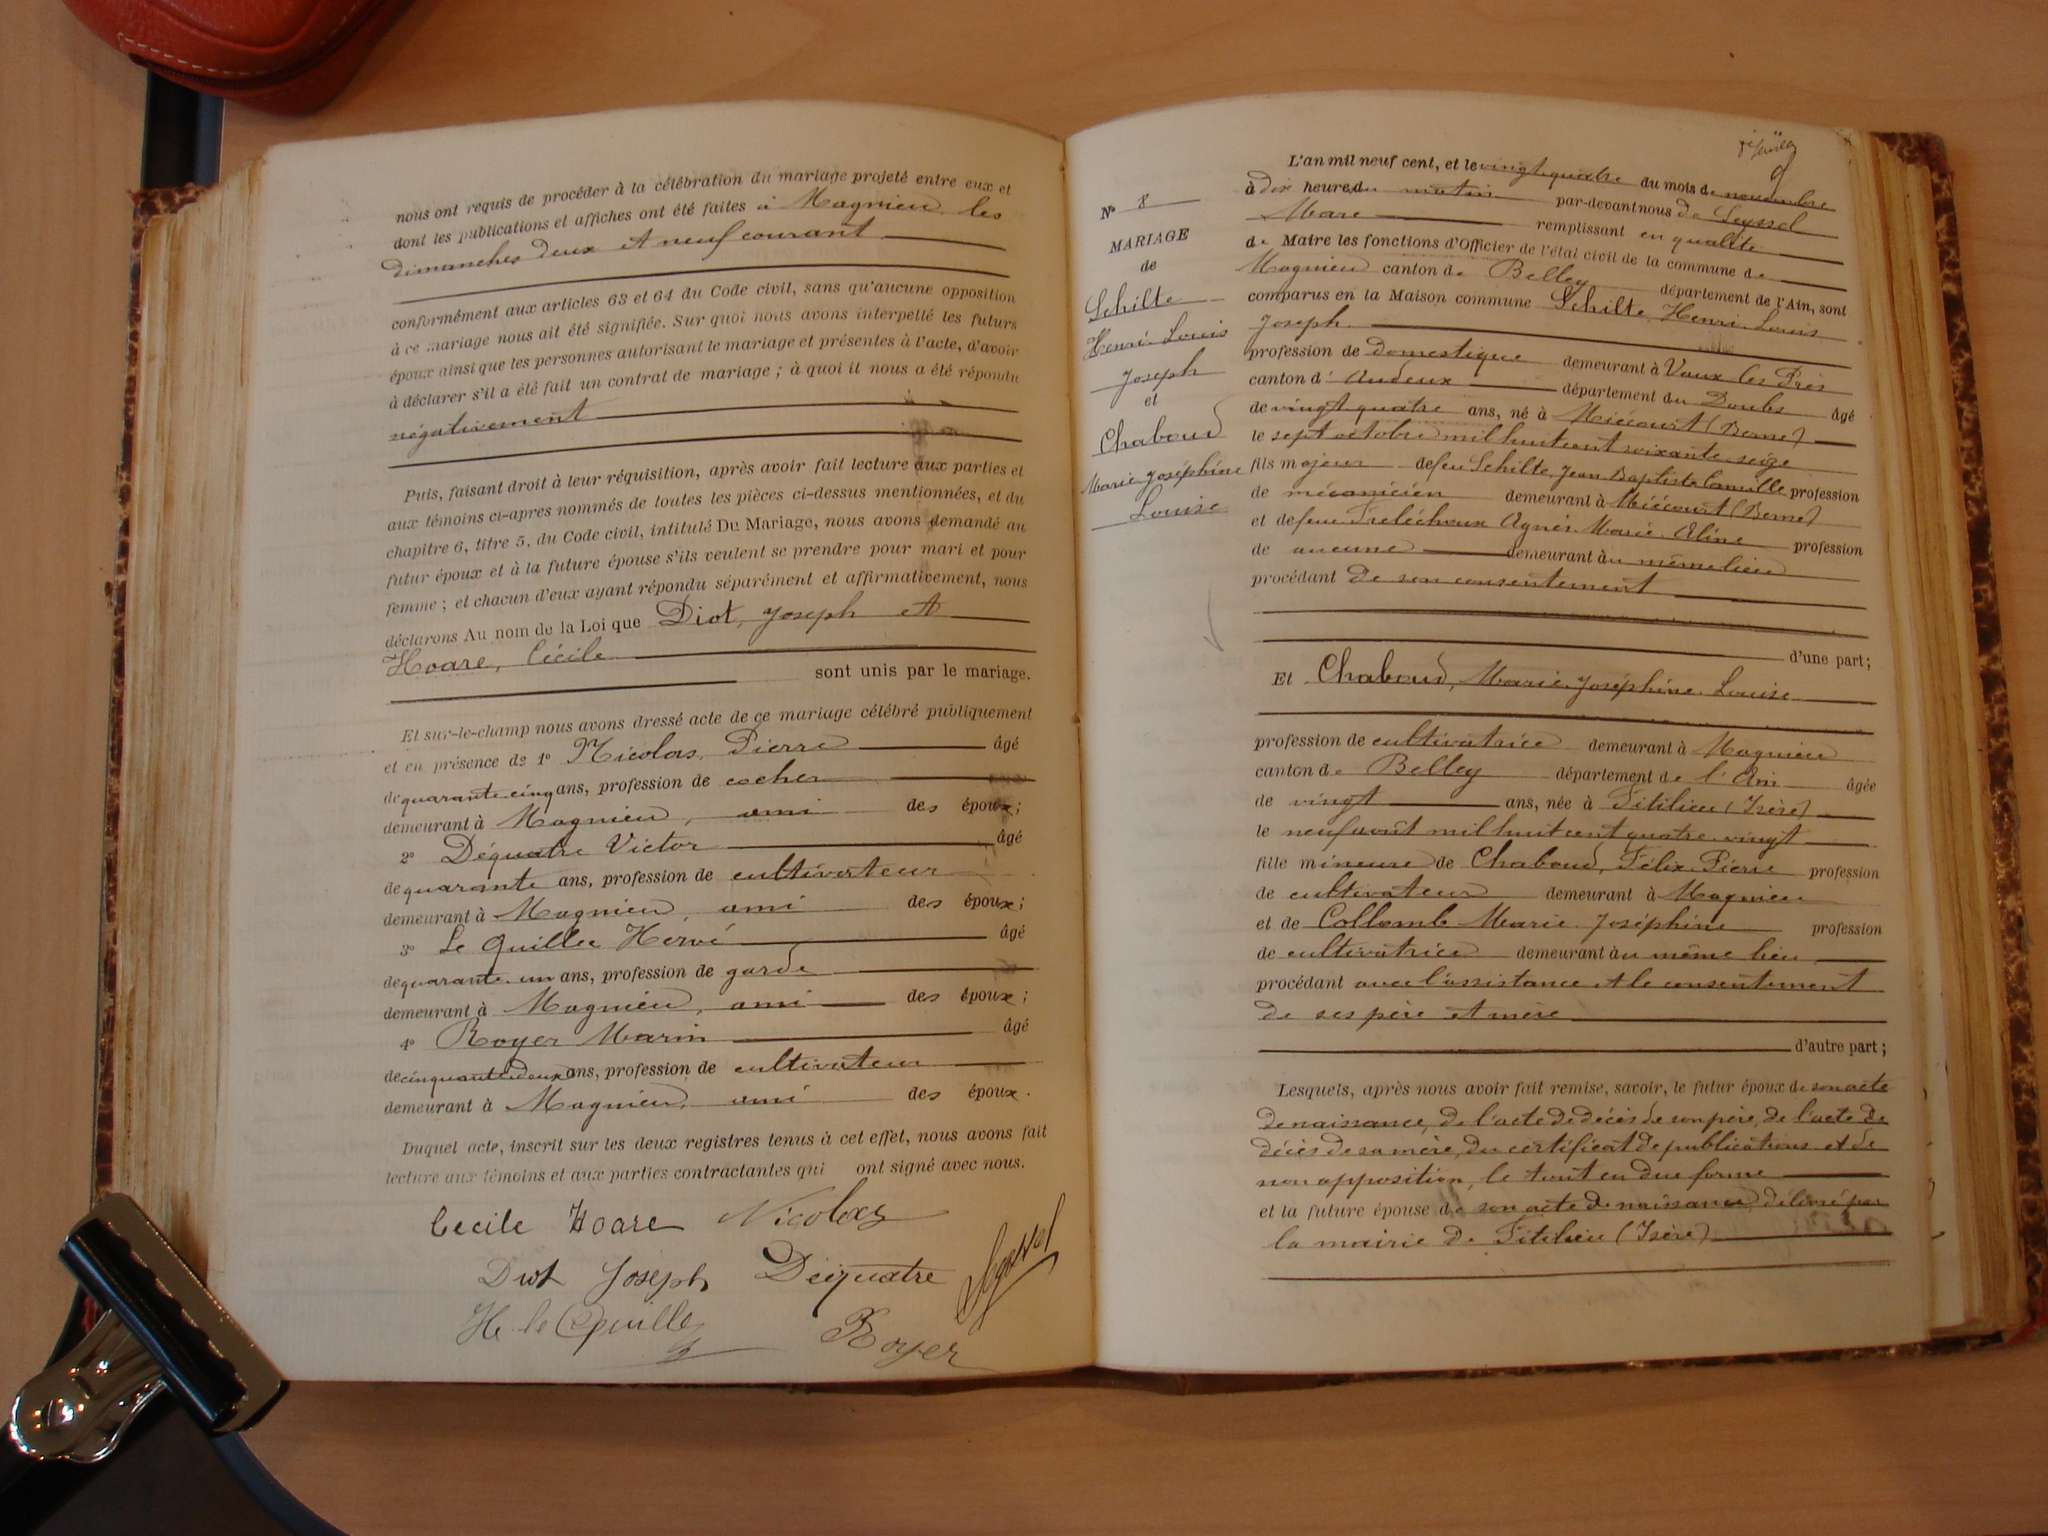 nous ont requis de procéder à la célébration du mariage projeté entre eux et
dont les publications et affiches ont été faites à Magnieu les
dimanches deux et neuf courant
conformément aux articles 63 et 64 du Code civil, sans qu'aucune opposition
à ce mariage nous ait été signifiée. Sur quoi nous avons interpellé les futurs
époux ainsi que les personnes autorisant le mariage et présentes à l'acte, d'avoir
à déclarer s'il a été fait un contrat de mariage ; à quoi il nous a été répondu
négativement
Puis, faisant droit à leur réquisition, après avoir fait lecture aux parties et
aux témoins ci-apres nommés de toutes les pièces ci-dessus mentionnées, et du
chapitre 6, titre 5, du Code civil, intitulé Du Mariage, nous avons demandé au
futur époux et à la future épouse s'ils veulent se prendre pour mari et pour
femme ; et chacun d'eux ayant répondu séparément et affirmativement, nous
déclarons Au nom de la Loi que Diot, Joseph et
Hoare, Cécile
sont unis par le mariage.
Et sur-le-champ nous avons dressé acte de ce mariage célébré publiquement
et en présence de 1° Nicolas, Pierre âgé
de quarante cinq ans, profession de cocher
demeurant à Magnieu, ami des époux ;
2° Déquatre Victor âgé
de quarante ans, profession de cultivateur
demeurant à Magnieu, ami des époux ;
3° Le Quillec Hervé âgé
de quarante un ans, profession de garde
demeurant à Magnieu, ami des époux ;
4° Royer Marin âgé
de cinquante deux ans, profession de cultivateur
demeurant à Magnieu, ami des époux.
Duquel acte, inscrit sur les deux registres tenus à cet effet, nous avons fait
lecture aux témoins et aux parties contractantes qui ont signé avec nous.
Cecile Hoare Nicolas
Diot Joseph Déquatre
H. le Quillec Royer
N° 8
MARIAGE
de
Schilte
Henri Louis
Joseph
et
Chaboud
Marie Joséphine
Louise
L'an mil neuf cent, et le vingt quatre du mois de novembre
à dix heures du matin par-devant nous de Seyssel
Mare remplissant en qualité
de Maire les fonctions d'Officier de l'état civil de la commune de
Magnieu canton de Belley département de l'Ain, sont
comparus en la Maison commune Schilte Henri Louis
Joseph
profession de Domestique demeurant à Vaux les Prés
canton d' Audeux département du Doubs âgé
de vingt quatre ans, né à Miécourt (Berne)
le sept octobre mil huit cent soixante seize
fils majeur de feu Schilte Jean Baptiste Camille profession
de mécanicien demeurant à Miécourt (Berne)
et de feue Freléchoux Agnès Marie Aline profession
de aucune demeurant au même lieu
procédant de son consentement
d'une part ;
Et Chaboud, Marie Joséphine Louise
profession de cultivatrice demeurant à Magnieu
canton de Belley département de l'Ain âgée
de vingt ans, née à Fitilieu (Isère)
le neuf août mil huit cent quatre vingt
fille mineure de Chaboud, Félix Pierre profession
de cultivateur demeurant à Magnieu
et de Collomb Marie Joséphine profession
de cultivatrice demeurant au même lieu
procédant avec l'assistance et le consentement
de ses père et mère
d'autre part ;
Lesquels, après nous avoir fait remise, savoir, le futur époux de son acte
de naissance, de l'acte de décès de son père, de l'acte de
décès de sa mère, du certificat de publications et de
non opposition, le tout en due forme
et la future épouse de son acte de naissance délivré par
la mairie de Fitilieu (Isère)